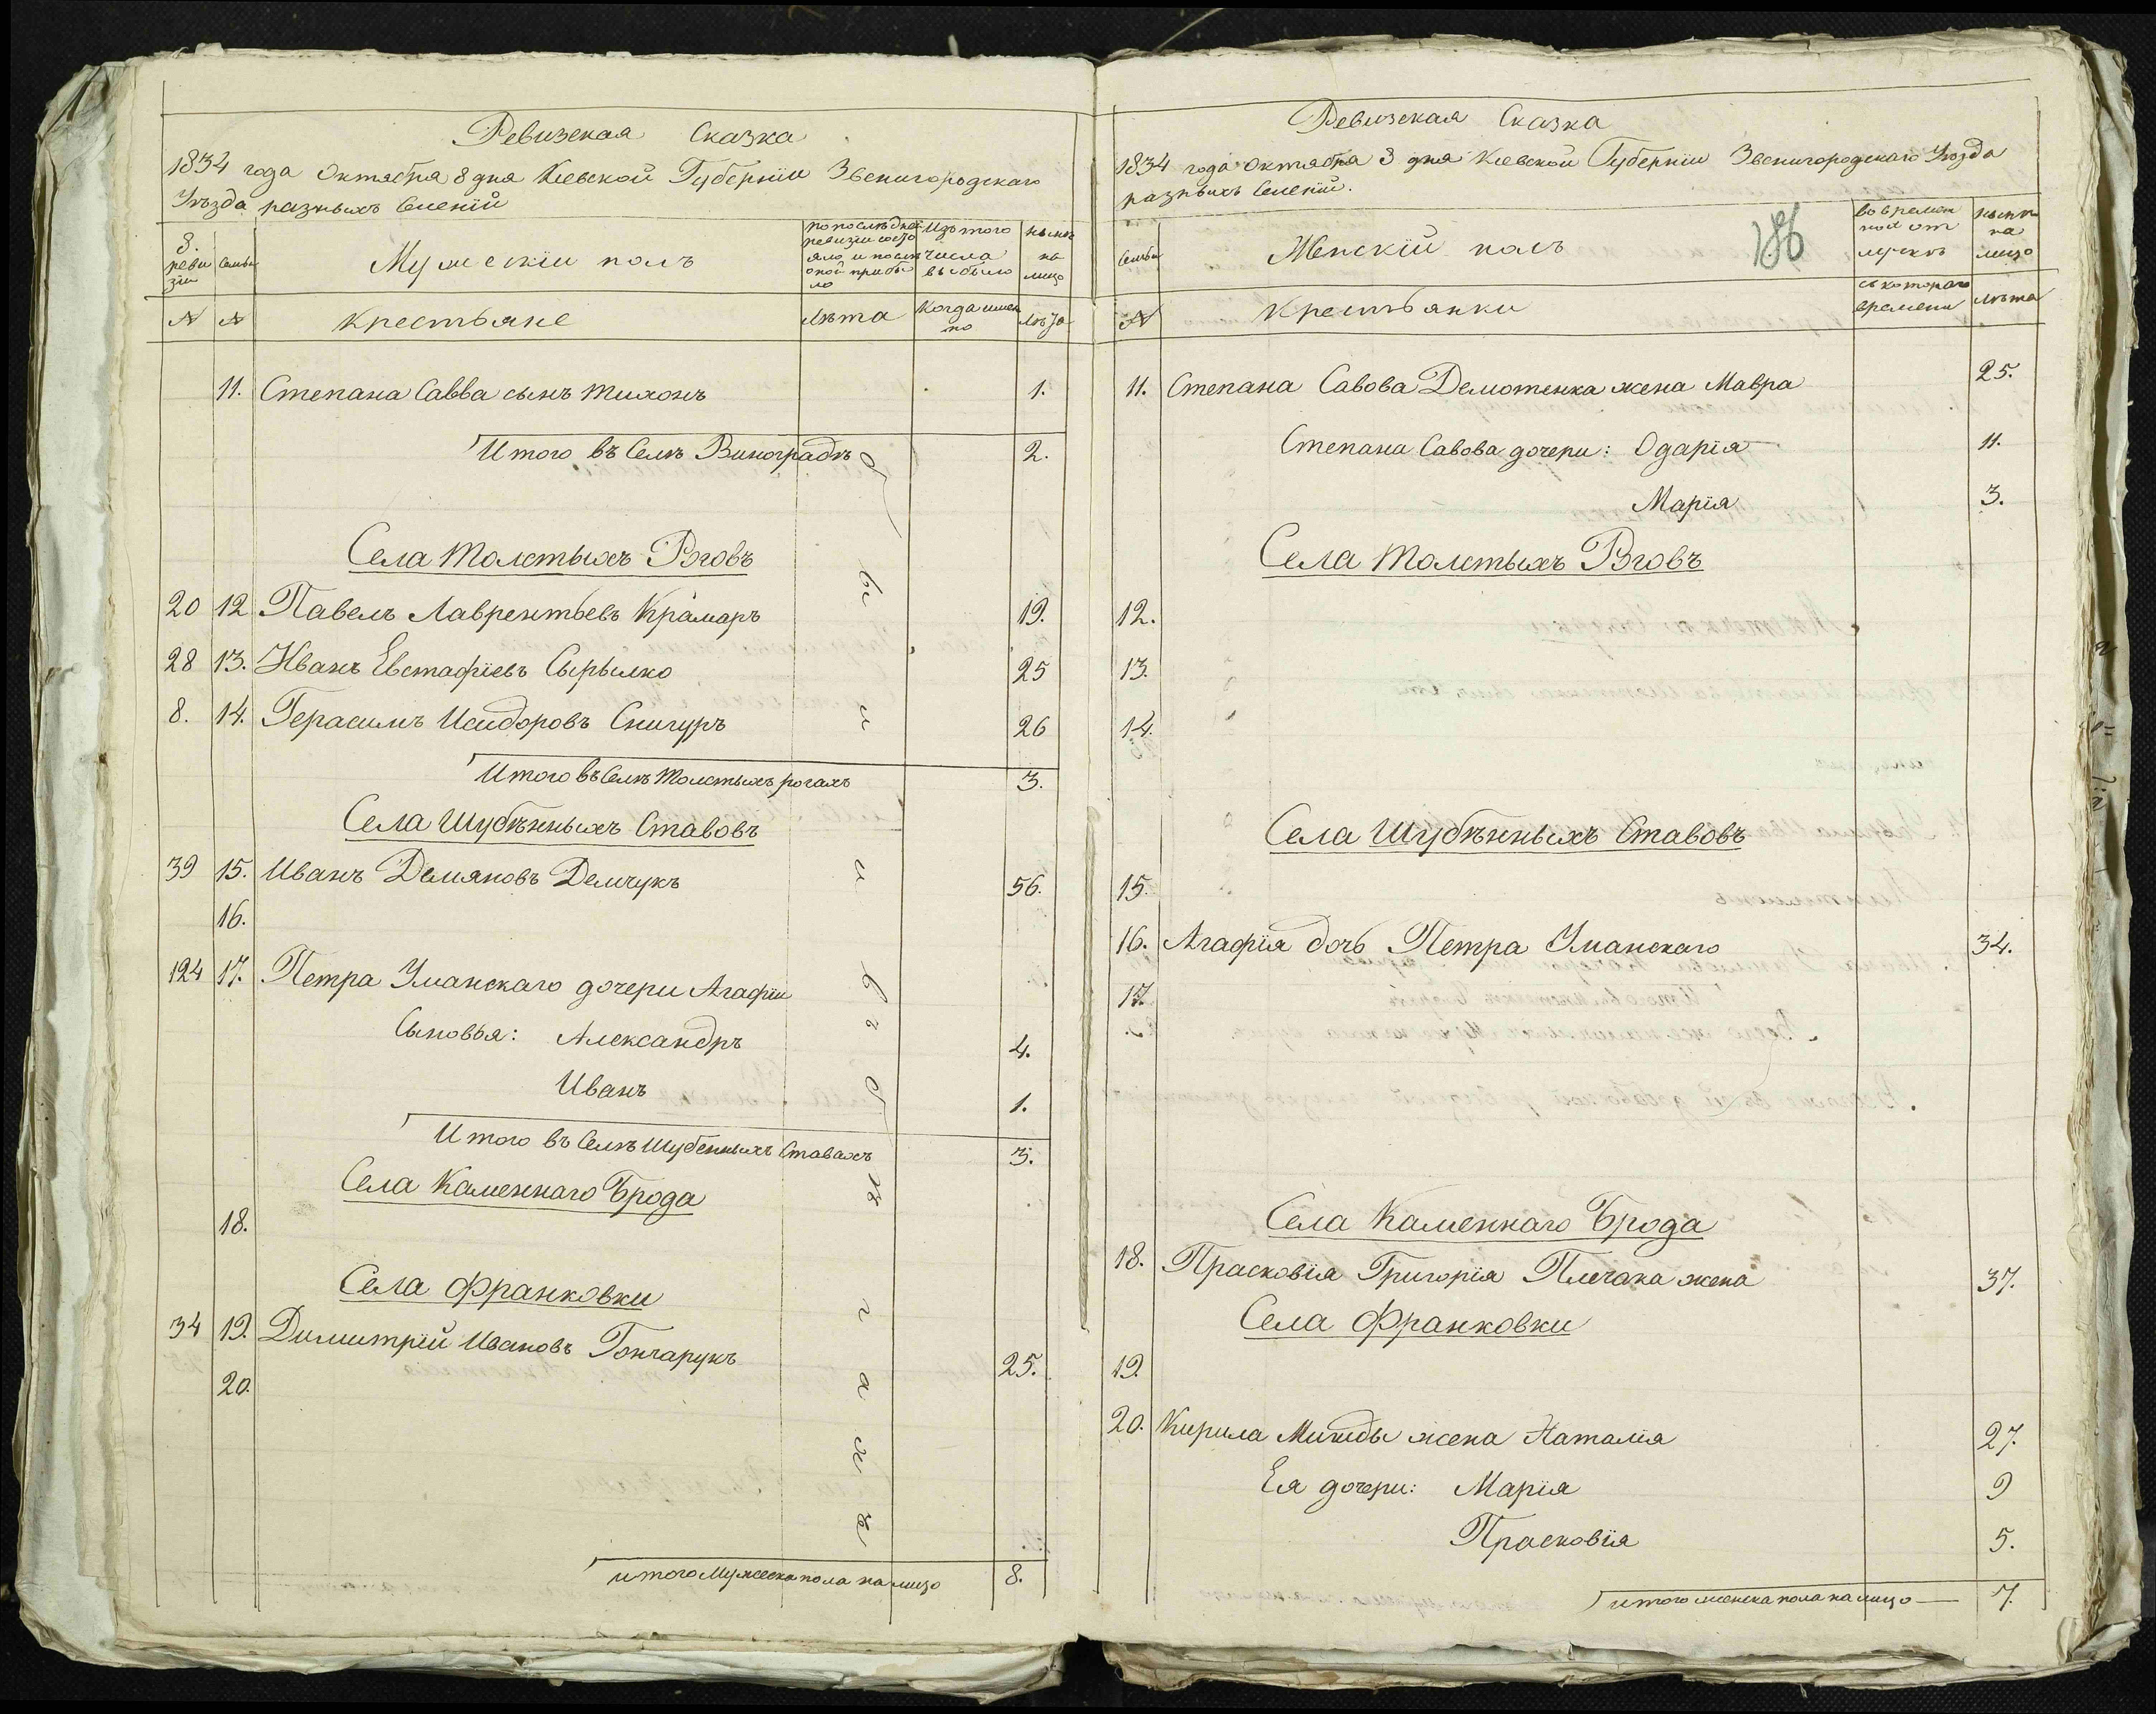 Ревизская Сказка
1834 года Октября 8 дня Кіевской Губерніи Звенигородскаго
Уѣзда разныхъ Селеній
8. ревизіи
Семьи
Мужескій полъ
по послѣдней ревизіи состояло и послѣ оной прибыло
Изъ того числа выбыло
нынѣ на лицо
№ № Крестьяне Лѣта Когда именно Лѣта
11. Степана Савва сынъ Тихонъ 1.
Итого въ Селѣ Виноградѣ 2.
Села Толстыхъ Роговъ
20 12 Павелъ Лаврентьевъ Крамаръ 19.
28 13. Иванъ Евстафіевъ Сырылко 25
8. 14. Герасимъ Исидоровъ Снигуръ 26
Итого въ Селѣ Толстыхъ рогахъ 3.
Села Шубѣнныхъ Ставовъ
39 15. Иванъ Демяновъ Демчукъ 56.
16.
124 17. Петра Уманскаго дочери Агафіи
Сыновья: Александръ 4.
Иванъ 1.
Итого въ Селѣ Шубенныхъ Ставахъ 3.
Села Каменнаго Брода
18.
Села Франковки
34 19. Димитрій Ивановъ Гончарукъ 25.
20.
итого Мужеска пола на лицо 8.
Ревизская Сказка
1834 года Октября 8 дня Кіевской Губерніи Звенигородскаго Уѣзда
разныхъ Селеній.
186
Семьи
Женскій полъ
во временной отлучкѣ
нынѣ на лицо
№ Крестьянки съ котораго времени Лѣта
11. Степана Савова Демотенка жена Мавра 25.
Степана Савова дочери: Одарія 11.
Марія 3.
Села Толстыхъ Роговъ
12.
13.
14.
Села Шубѣнныхъ Ставовъ
15.
16. Агафія дочь Петра Уманскаго 34.
17.
Села Каменнаго Брода
18. Прасковія Григорія Плечака жена 37.
Села Франковки
19.
20. Кирила жена Наталія 27.
Ея дочери: Марія 9
Прасковія 5.
итого женска пола на лицо 7.